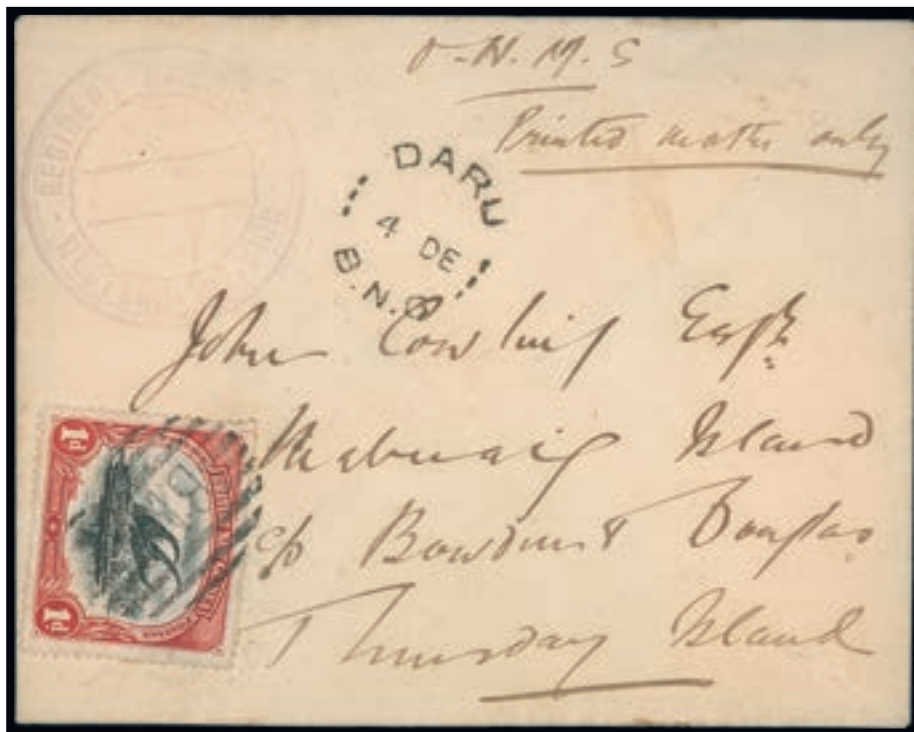 O.H.M.S
Printed matter only
DARU
4 DE
B.N.G
John Cowling Esqre
Mabuaig Island
c/o Bowden & Douglas
Thursday Island
1d
1d